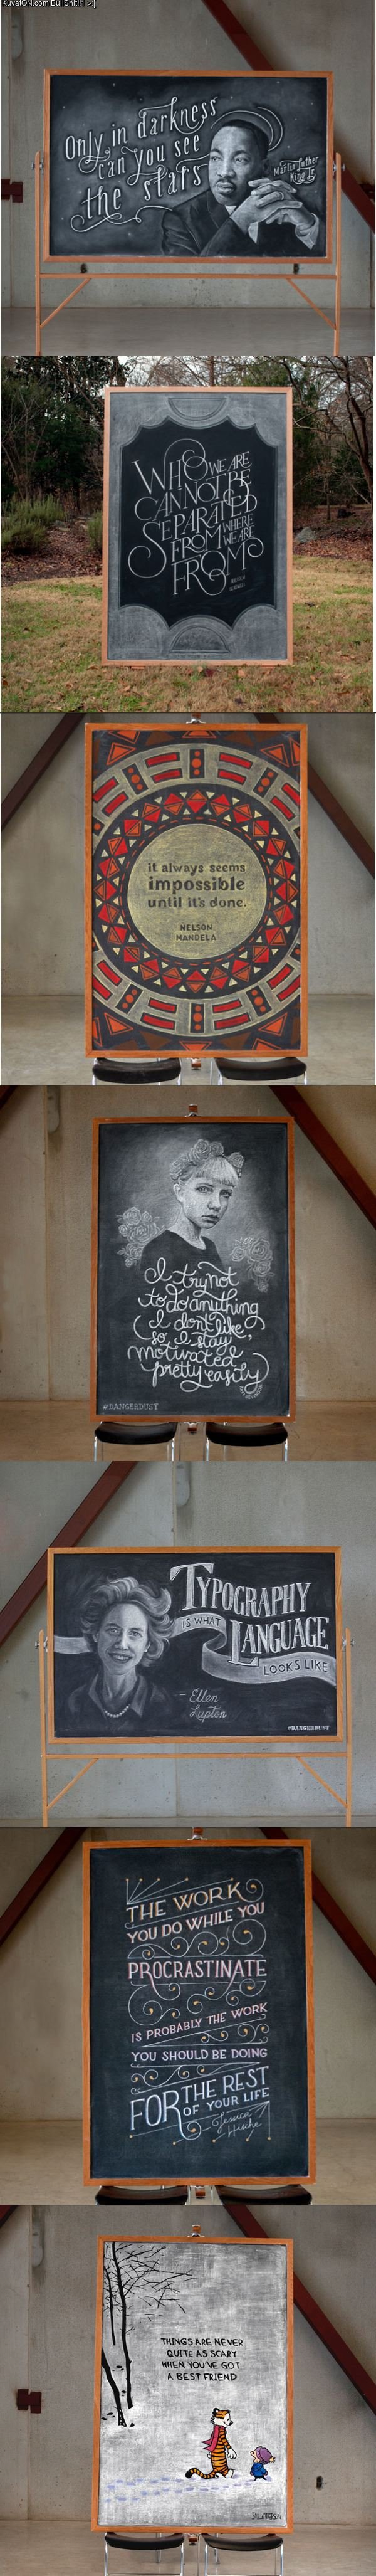 KuvatON.com BullShit!!1 >:[
Only in darkness
can you see
the stars
Martin Luther
King Jr
WHO WE ARE
CANNOT BE
SEPARATED
FROM WHERE
WE ARE
FROM
MALCOLM
GLADWELL
it always seems
impossible
until it's done.
NELSON
MANDELA
I try not
to do anything
I don't like,
so I stay
motivated
pretty easily
#DANGERDUST
TYPOGRAPHY
IS WHAT
LANGUAGE
LOOKS LIKE
- Ellen
Lupton
#DANGERDUST
THE WORK
YOU DO WHILE YOU
PROCRASTINATE
IS PROBABLY THE WORK
YOU SHOULD BE DOING
FOR THE REST
OF YOUR LIFE
Jessica
Hische
THINGS ARE NEVER
QUITE AS SCARY
WHEN YOU'VE GOT
A BEST FRIEND
BILL WATTERSON